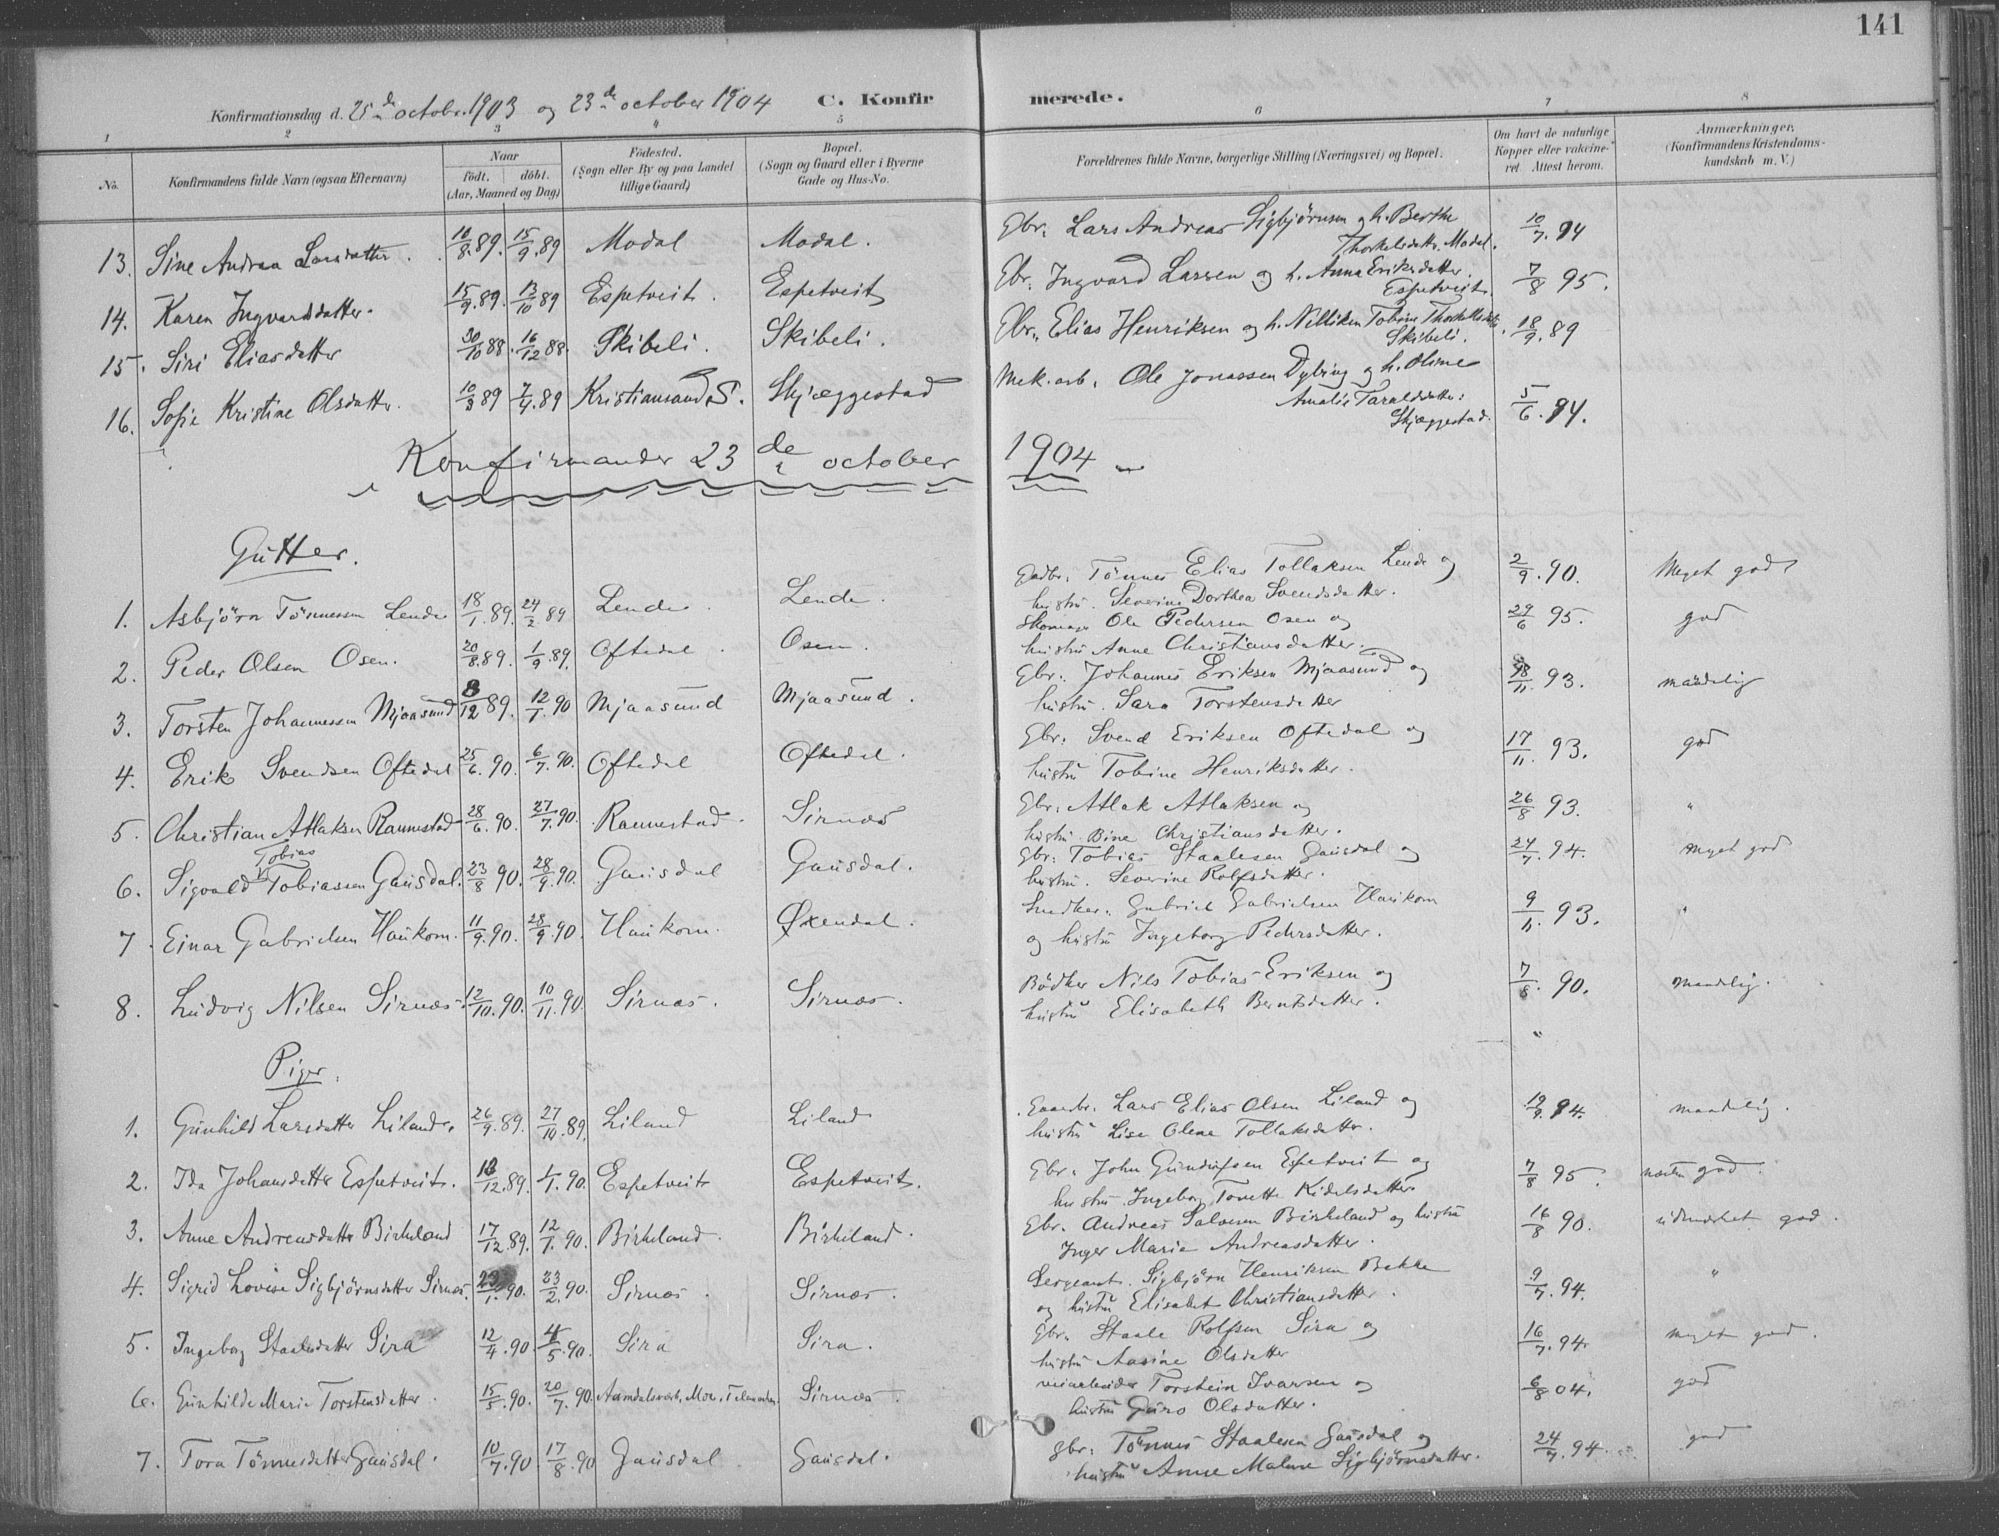 141
Konfirmationsdag d. 25de octobr. 1903 og 23de october 1904 C. Konfirmerede.
1 2 3 4 5 6 7 8
No. Konfirmandens fulde Navn (ogsaa Efternavn) Naar födt. döbt. (Aar, Maaned og Dag) Födested. (Sogn eller By og paa Landet tillige Gaard) Bopæl. (Sogn og Gaard eller i Byerne Gade og Hus-No. Forældrenes fulde Navne, borgerlige Stilling (Næringsvei) og Bopæl. Om havt de naturlige Kopper eller vakcineret. Attest herom. Anmærkninger. (Konfirmandens Kristendomskundskab m. V.)
13. Sine Andrea Larsdatter. 10/8.89. 15/9.89 Modal Modal. Gbr. Lars Andreas Sigbjörnsen og h. Berthe Thorkelsdatter Modal. 10/7.94
14. Karen Ingvardsdatter. 15/9.89. 13/10 89 Espetveit. Espetveit Gbr. Ingvard Larsen og h. Anna Eriksdatter Espetveit. 7/8 95.
15. Siri Eliasdatter 30/10 88. 16/12 88. Skibeli. Skibeli. Gbr. Elias Henriksen og h. Nelliken Tobine Skibeli. 18/9.89
16. Sofie Kristine Olsdatter. 10/3 89 7/4.89 Kristiansand S. Skjæggestad Mek. arb. Ole Jonassen Dybing og h. Oline Amalie Taraldsdatter Skjæggestad. 5/6.94.
Konfirmander 23de october 1904
Gutter.
1. Asbjörn Tönnessen Lende 18/1.89. 24/2 89 Lende. Lende. Gadbr. Tönnes Elias Tollaksen Lende og 2/9.90. Meget god
hustru. Severine Dorthea Svendsdatter.
2. Peder Olsen Osen. 20/8.89. 1/9.89. Oftedal. Osen. Skomager Ole Pedersen Osen og 29/6 95. god
hustru Anne Christiansdatter.
3. Torsten Johannessen Mjaasund 8/12 89. 12/1.90 Mjaasund Mjaasund. Gbr. Johannes Eriksen Mjaasund og 18/11.93. maadelig
hustru. Sara Torstensdatter
4. Erik Svendsen Oftedal 25/6.90. 6/7.90. Oftedal Oftedal. Gbr. Svend Eriksen Oftedal og 17/11.93. god
hustru Tobine Henriksdatter.
5. Christian Atlaksen Rannestad 28/6.90. 27/7.90. Rannestad. Sirnæs Gbr. Atlak Atlaksen og 26/8 93. "
hustru. Bine Christiansdatter.
6. Sigvald Tobias Tobiassen Gausdal. 23/8 90. 28/9.90. Gausdal Gausdal. Gbr. Tobias Staalesen Gausdal og 24/7.94. meget god
hustru. Severine Rolfsdatter.
7. Einar Gabrielsen Haukom. 11/9.90. 28/9.90. Haukom. Øxendal. Snedker. Gabriel Gabrielsen Haukom 9/11.93. "
og hustru Ingeborg Pedersdatter.
8. Ludvig Nilsen Sirnæs. 12/10.90. 10/11.90 Sirnæs. Sirnæs. Bödker Nils Tobias Eriksen og 7/8.90. maadelig.
hustru Elisabeth Berntsdatter. "
Piger.
1. Gunhild Larsdatter Liland. 26/9.89. 27/10.89. Liland Liland Gaardbr. Lars Elias Olsen Liland og 19/9.94. maadelig.
hustru Lise Olene Tollaksdatter.
2. Ida Johansdatter Espetveit. 18/12.89. 1/1.90. Espetveit Espetveit. Gbr. John Espetveit og 7/8 95. næsten god.
hustru Ingeborg Tonette Kidelsdatter
3. Anne Andreasdatter Birkeland 17/12.89. 12/1.90. Birkeland. Birkeland. Gbr. Andreas Salvesen Birkeland og hustru 16/8 90. udmærket god.
Inger Marie Andreasdatter.
4. Sigrid Lovise Sigbjörnsdatter Sirnæs. 23/1.90. 23/2.90. Sirnæs. Sirnæs. Sergeant. Sigbjörn Henriksen Bakke 9/7.94. "
og hustru Elisabet Christiansdatter.
5. Ingeborg Staalesdatter Sira 12/4.90 4/5.90. Sira Sira. Gbr. Staale Rolfsen Sira og 16/7.94. meget god.
hustru Aasine Olsdatter
6. Gunhilde Marie Torstensdatter. 15/5.90. 20/7.90. Aamdalsverk, Mo, Telemarken. Sirnæs. veiarbeider Torstein Ivarsen og 6/8 04. god
hustru Guro Olsdatter.
7. Tora Tönnesdatter Gausdal. 10/7.90 17/8.90 Gausdal Gausdal. gbr. Tönnes Staalesen Gausdal og 24/7.94. god
hustru Anne Malene Sigbjörnsdatter.